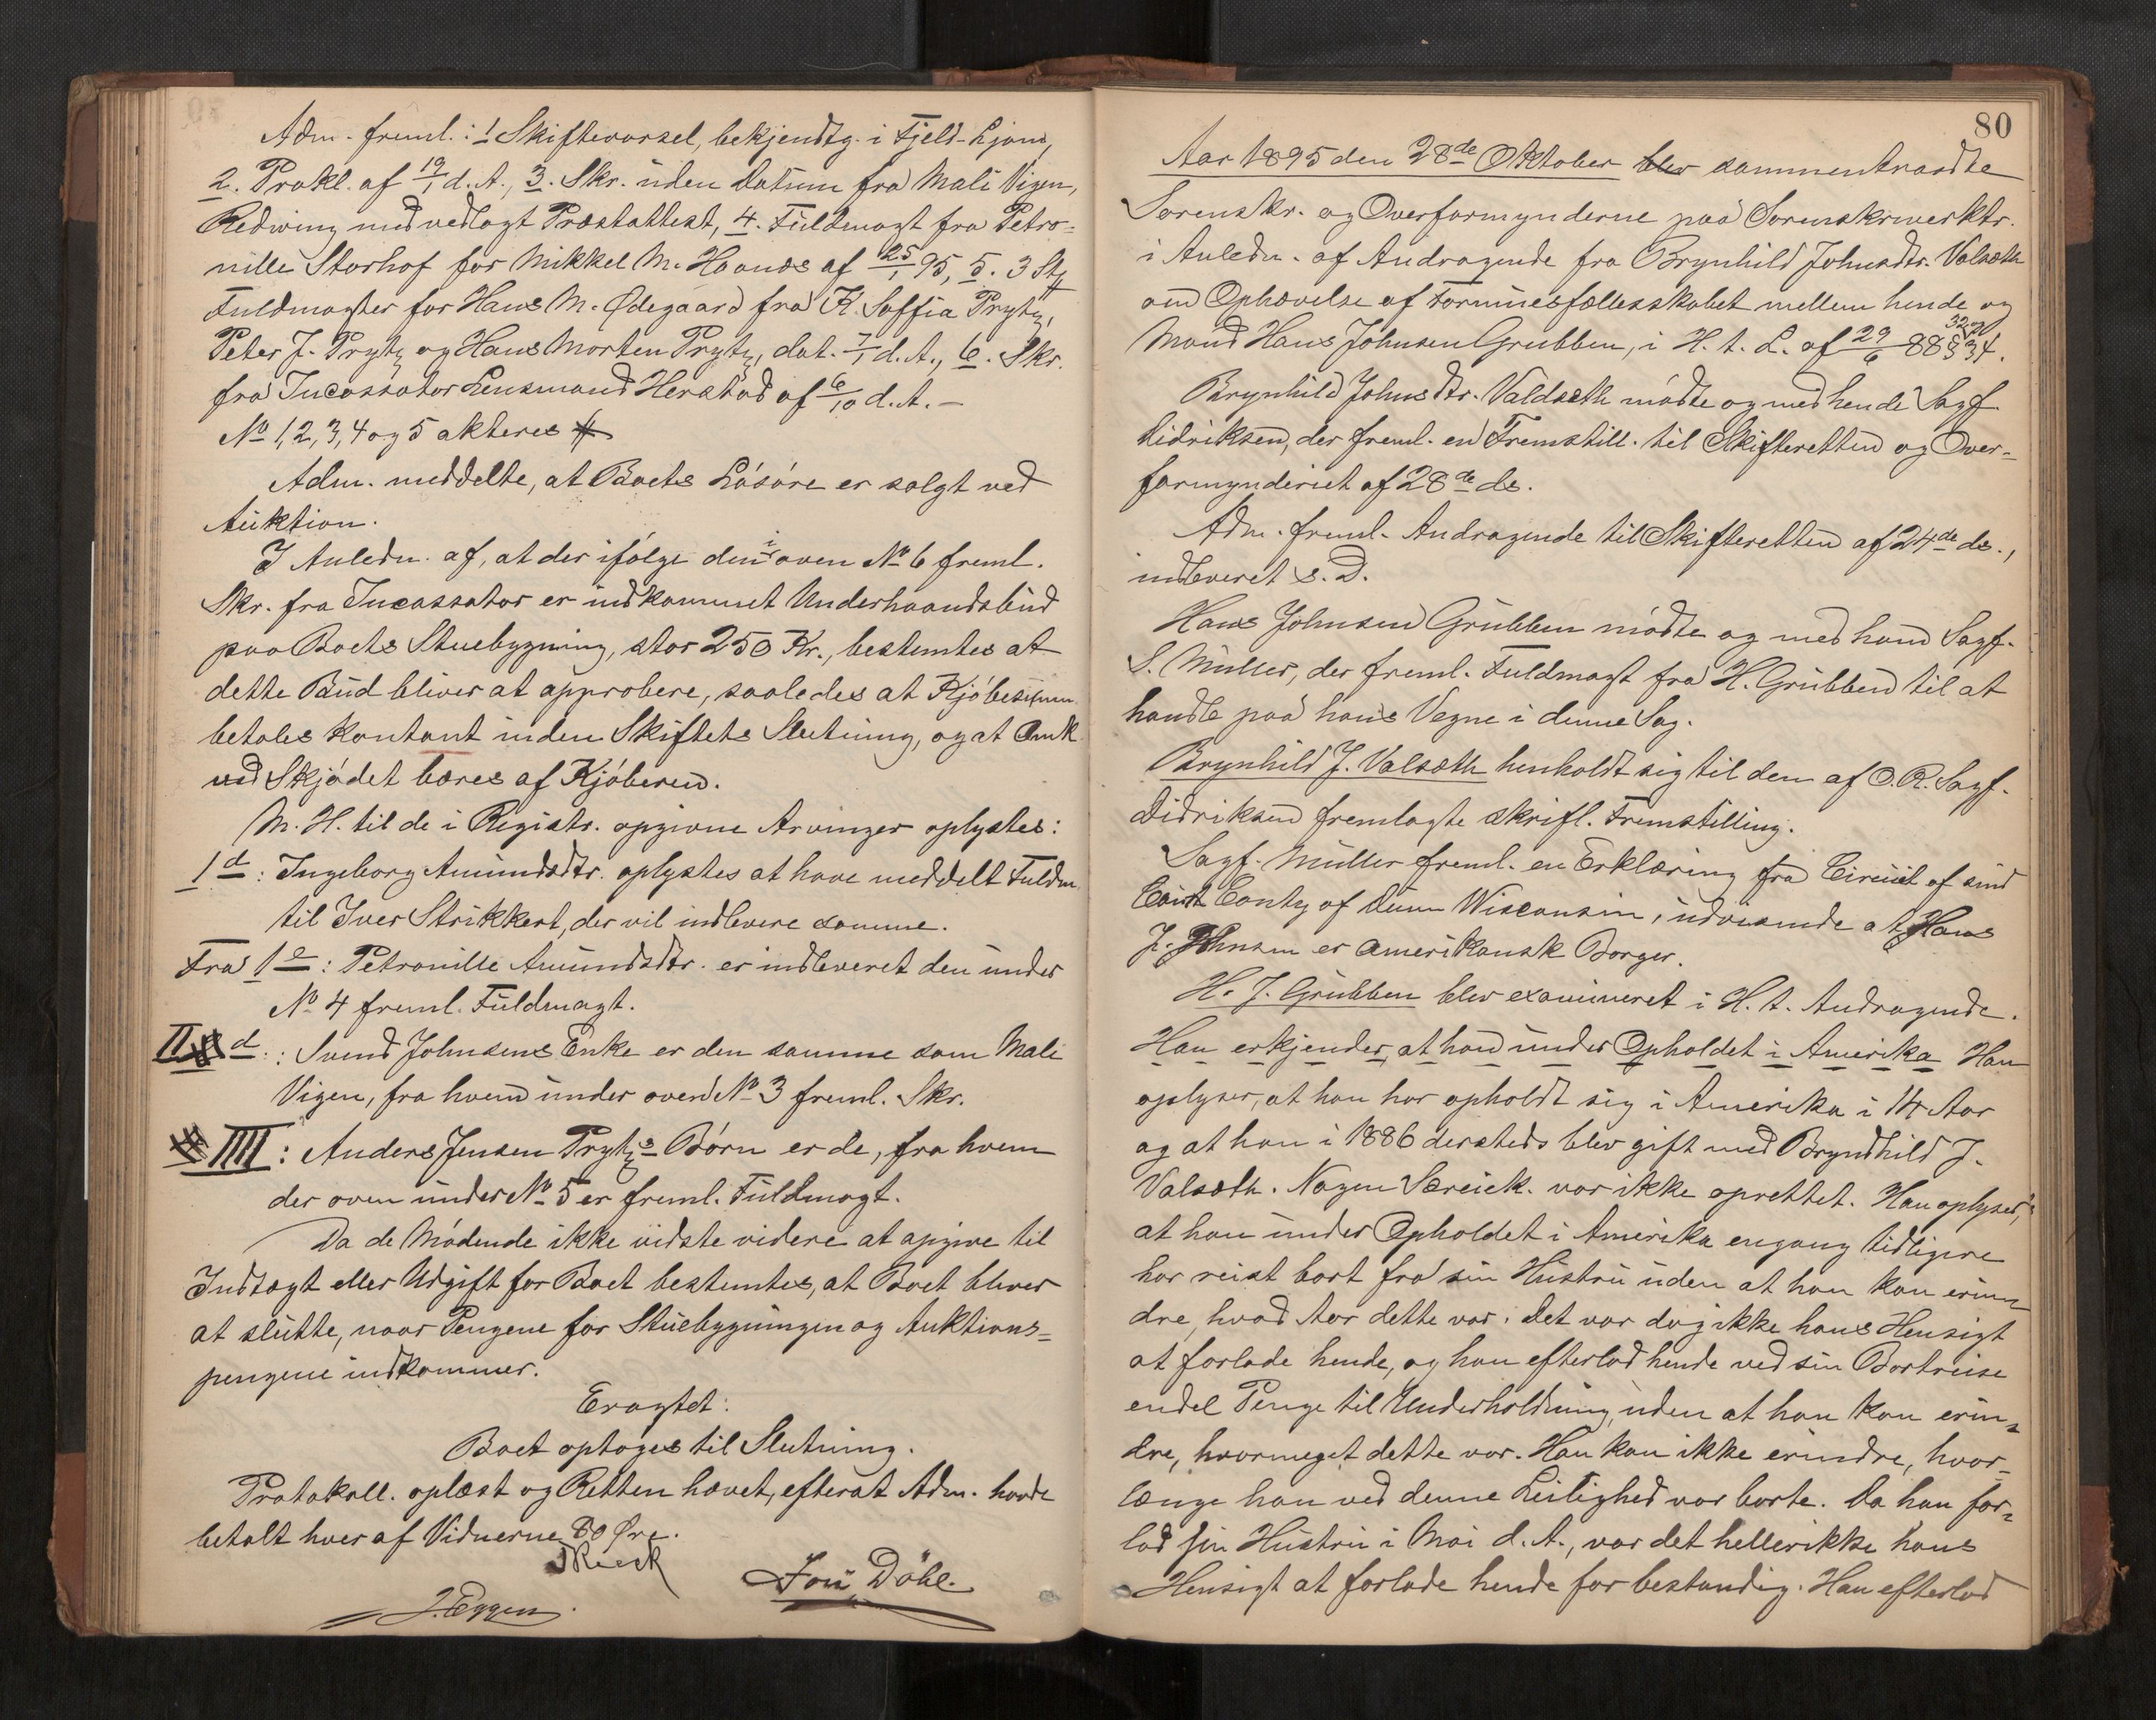 Adm. freml.: 1 Skiftevarsel, bekjendtg. i Fjeld-Ljom,
2. Prokl. af 19/1 d. A., 3. Skr. uden Datum fra Mali Vigen,
Redwing med vedlagt Præstattest, 4. Fuldmagt fra Petro-
nille Storhof for Mikkel M. Haanæs af 25/1 95, 5. 3 Stk
Fuldmagter for Hans M. Ødegaard fra K. Soffia Prytz,
Peter J. Prytz og Hans Morten Prytz, dat. 7/1 d. A., 6. Skr.
fra Incassator Lensmand Herstad af 6/10 d. A. –
No 1, 2, 3, 4 og 5 akteres
Adm. meddelte, at Boets Løsøre er solgt ved
Auktion.
I Anledn. af, at der ifølge den i oven No 6 freml.
Skr. fra Incassator er indkommet Underhaandsbud
paa Boets Stuebygning, stor 250 Kr., bestemtes at
dette Bud bliver at approbere, saaledes at Kjøbesum
betales kontant inden Skiftets Slutning, og at Omk.
ved Skjødet bæres af Kjøberen.
M. H. til de i Registr. opgivne Arvinger oplystes:
1 d: Ingeborg Amundsdtr. oplystes at have meddelt Fuldm.
til Iver Strikkert, der vil indlevere samme.
Fra 1 e: Petronille Amundsdtr. er indleveret den under
No 4 freml. Fuldmagt.
II d: Svend Johnsens Enke er den samme som Mali
Vigen, fra hvem under oven No 3 freml. Skr.
IIII: Anders Jensen Prytz's Børn er de, fra hvem
der oven under No 5 er freml. Fuldmagt.
Da de Mødende ikke vidste videre at opgive til
Indtægt eller Udgift for Boet bestemtes, at Boet bliver
at slutte, naar Pengene for Stuebygningen og Auktions-
pengene indkommer.
Eragtet:
Boet optages til Slutning.
Protokoll. oplæst og Retten hævet, efterat Adm. havde
betalt hver af Vidnerne 80 Øre.
Rieck
Jon Döhl.
J. Eggen.
80
Aar 1895 den 28de Oktober blev sammentraadte
Sorenskr. og Overformynderne paa Sorenskriverktr.
i Anledn. af Andragende fra Brynhild Johnsdtr. Valseth
om Ophævelse af Formuesfællesskabet mellem hende og
Mand Hans Johnsen Grubben, i H. t. L. af 29/6 88 § 34.
Brynhild Johnsdtr. Valdseth mødte og med hende Sagf.
Didriksen, der freml. en Fremstill. til Skifteretten og Over-
formynderiet af 28de ds.
Adm. freml. Andragende til Skifteretten af 24de ds.,
indleveret s. D.
Hans Johnsen Grubben mødte og med ham Sagf.
S. Müller, der freml. Fuldmagt fra H. Grubben til at
handle paa hans Vegne i denne Sag.
Brynhild J. Valseth henholdt sig til den af O. R. Sagf.
Didriksen fremlagte skrifl. Fremstilling.
Sagf. Müller freml. en Erklæring fra Circuit of
Court Conty of Dunn Wisconsin, udvisende at Hans
J. Johnsen er amerikansk Borger.
H. J. Grubben blev examineret i H. t. Andragende.
Han erkjender, at han under Opholdet i Amerika Han
oplyser, at han har opholdt sig i Amerika i 14 Aar
og at han i 1886 dersteds blev gift med Bryndhild J.
Valseth. Nogen Særeiek. var ikke oprettet. Han oplyser,
at han under Opholdet i Amerika engang tidligere
har reist bort fra sin Hustru uden at han kan erin-
dre, hvad Aar dette var. Det var dog ikke hans Hensigt
at forlade hende, og han efterlod hende ved sin Bortreise
endel Penge til Underholdning, uden at han kan erin-
dre, hvormeget dette var. Han kan ikke erindre, hvor-
længe han ved denne Leilighed var borte. Da han for-
lod sin Hustru i Mai d. A., var det heller ikke hans
Hensigt at forlade hende for bestandig. Han efterlod